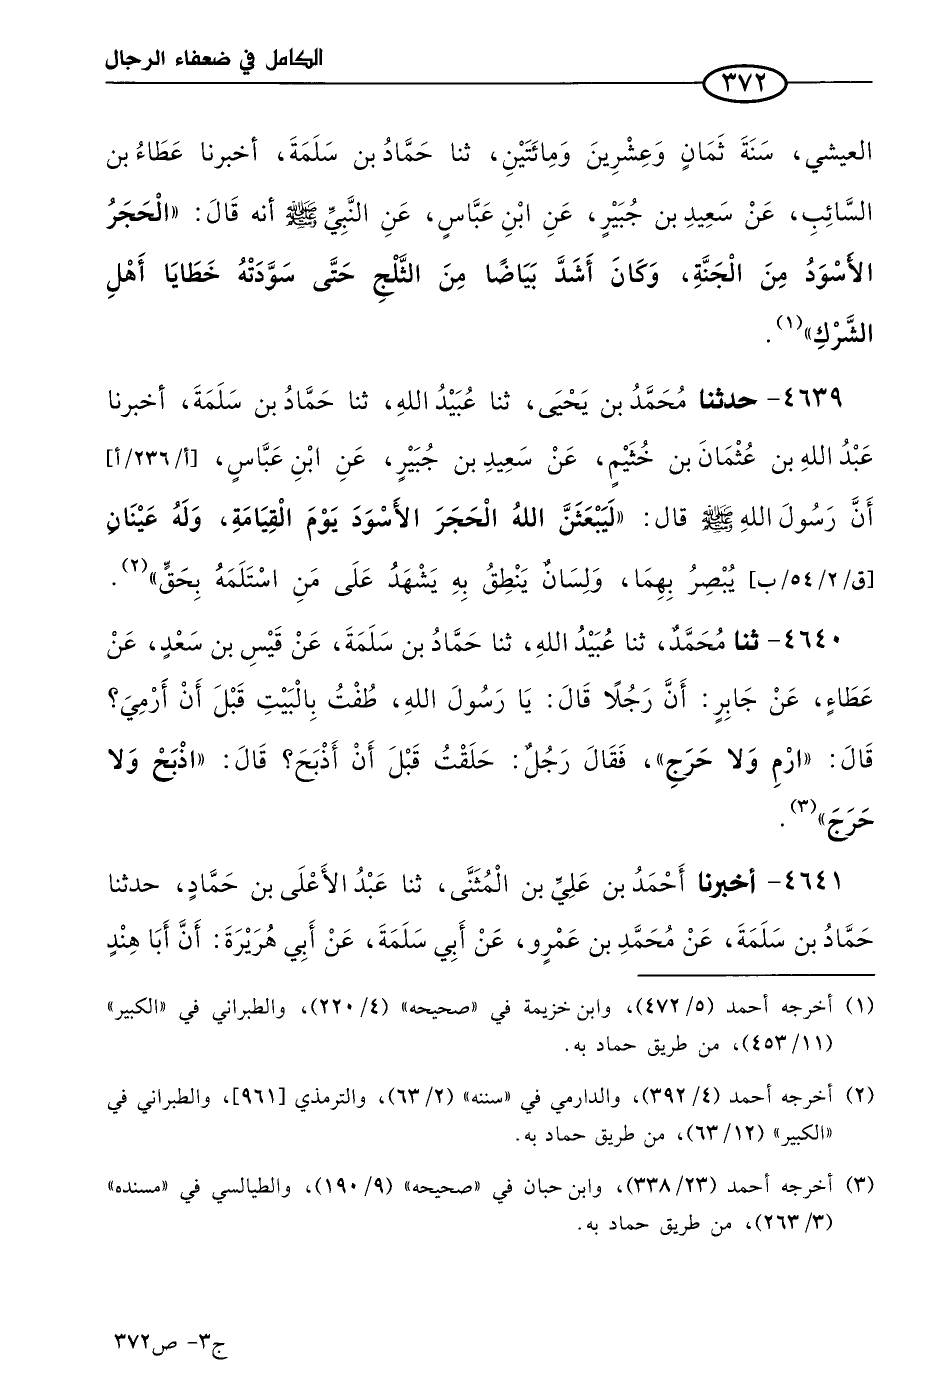 الكامل في ضعفاء الرجال
٣٧٢
العيشي، سَنَةَ ثَمَانٍ وَعِشْرِينَ وَمِائَتَيْنِ، ثنا حَمَّادُ بن سَلَمَةَ، أخبرنا عَطَاءُ بن
السَّائِبِ، عَنْ سَعِيدِ بن جُبَيْرٍ، عَنِ ابْنِ عَبَّاسٍ، عَنِ النَّبِيِّ ﷺ أنه قَالَ: «الْحَجَرُ
الأَسْوَدُ مِنَ الْجَنَّةِ، وَكَانَ أَشَدَّ بَيَاضًا مِنَ الثَّلْجِ حَتَّى سَوَّدَتْهُ خَطَايَا أَهْلِ
الشَّرْكِ»(١).
٤٦٣٩- حدثنا مُحَمَّدُ بن يَحْيَى، ثنا عُبَيْدُ اللهِ، ثنا حَمَّادُ بن سَلَمَةَ، أخبرنا
عَبْدُ اللهِ بن عُثْمَانَ بن خُثَيْمٍ، عَنْ سَعِيدِ بن جُبَيْرٍ، عَنِ ابْنِ عَبَّاسٍ، [أ/٢٣٦/أ]
أَنَّ رَسُولَ اللهِ ﷺ قال: «لَيَبْعَثَنَّ اللهُ الْحَجَرَ الأَسْوَدَ يَوْمَ الْقِيَامَةِ، وَلَهُ عَيْنَانِ
[ق/٥٤/٢/ب] يُبْصِرُ بِهِمَا، وَلِسَانٌ يَنْطِقُ بِهِ يَشْهَدُ عَلَى مَنِ اسْتَلَمَهُ بِحَقٍّ»(٢).
٤٦٤٠- ثنا مُحَمَّدٌ، ثنا عُبَيْدُ اللهِ، ثنا حَمَّادُ بن سَلَمَةَ، عَنْ قَيْسِ بن سَعْدٍ، عَنْ
عَطَاءٍ، عَنْ جَابِرٍ: أَنَّ رَجُلًا قَالَ: يَا رَسُولَ اللهِ، طُفْتُ بِالْبَيْتِ قَبْلَ أَنْ أَرْمِيَ؟
قَالَ: «ارْمِ وَلا حَرَجِ»، فَقَالَ رَجُلٌ: حَلَقْتُ قَبْلَ أَنْ أَذْبَحَ؟ قَالَ: «اذْبَحْ وَلا
حَرَجَ»(٣).
٤٦٤١- أخبرنا أَحْمَدُ بن عَلِيِّ بن الْمُثَنَّى، ثنا عَبْدُ الأَعْلَى بن حَمَّادٍ، حدثنا
حَمَّادُ بن سَلَمَةَ، عَنْ مُحَمَّدِ بن عَمْرٍو، عَنْ أَبِي سَلَمَةَ، عَنْ أَبِي هُرَيْرَةَ: أَنَّ أَبَا هِنْدٍ
(١) أخرجه أحمد (٤٧٢/٥)، وابن خزيمة في «صحيحه» (٢٢٠/٤)، والطبراني في «الكبير»
(٤٥٣/١١)، من طريق حماد به.
(٢) أخرجه أحمد (٣٩٢/٤)، والدارمي في «سننه» (٦٣/٢)، والترمذي [٩٦١]، والطبراني في
«الكبير» (٦٣/١٢)، من طريق حماد به.
(٣) أخرجه أحمد (٣٣٨/٢٣)، وابن حبان في «صحيحه» (١٩٠/٩)، والطيالسي في «مسنده»
(٢٦٣/٣)، من طريق حماد به.
ج٣- ص٣٧٢